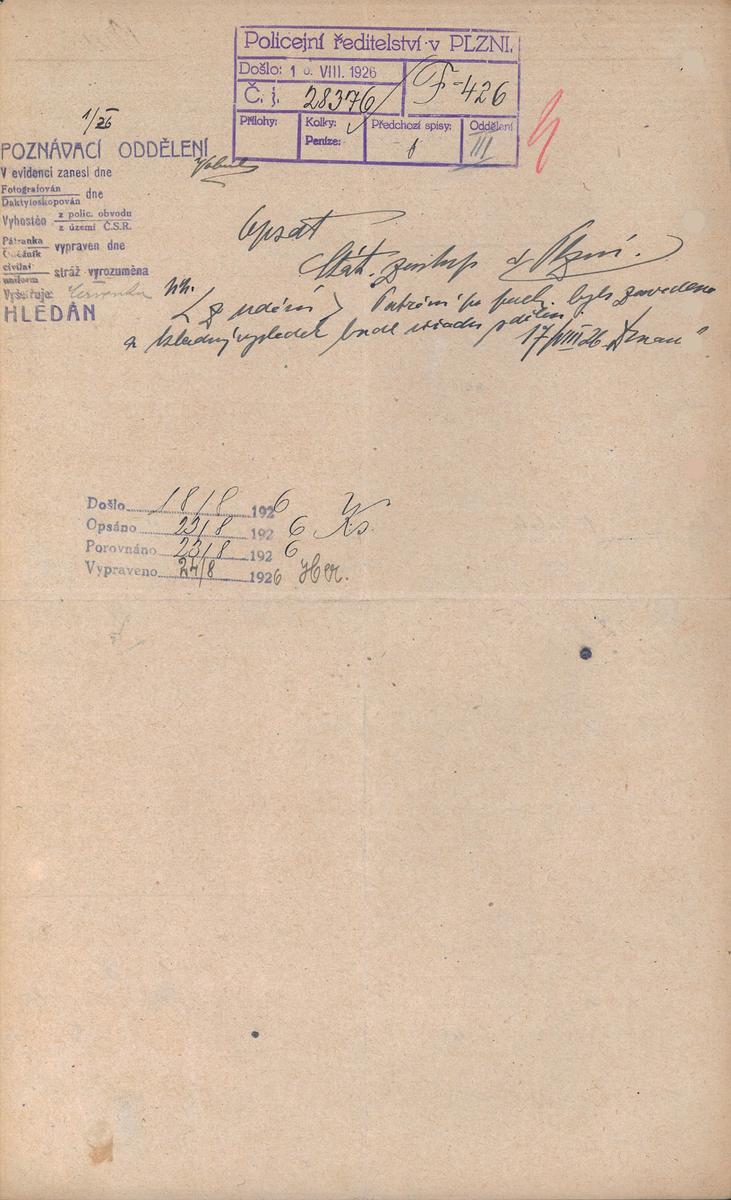 Policejní ředitelství v PLZNI.
Došlo: 1 0. VIII. 1926
Č. j. 28376
F-426
Přílohy:
Kolky:
Peníze:
Předchozí spisy:
Oddělení
III
1/26
POZNÁVACÍ ODDĚLENÍ
V evidenci zanesl dne
Fotografován
Daktyloskopován dne
Vyhostěn z polic. obvodu
z území Č.S.R.
Pátranka vypraven dne
civilní
uniform stráž vyrozuměna
Vyšetřuje: Červenka
HLEDÁN
Opsat
Stát. zástup. v Plzni.
Pátrání po pach. bylo zavedeno
a kladný výsledek bude sdělen.
17/VIII 26
Došlo 18/8 1926
Opsáno 23/8 1926
Porovnáno 23/8 1926
Vypraveno 24/8 1926 Her.